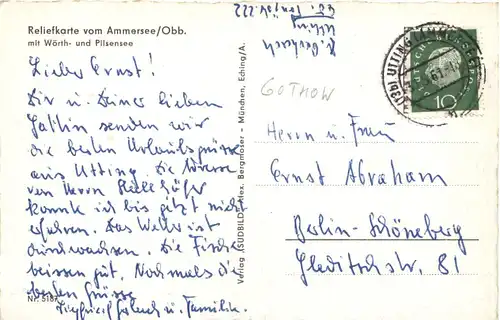 Reliefkarte vom Ammersee/Obb.
mit Wörth- und Pilsensee
Lieber Ernst!
Dir u. Deiner lieben
Gattin senden wir
die besten Urlaubsgrüsse
aus Utting. Die Adresse
von Herrn
konnte ich bis jetzt nicht
erfahren. Das Wehr ist
durchwachsen. Die Fische
beissen gut. Nochmals die
besten Grüsse
Siegfried u. Familie.
Nr. 5187
Verlag „SÜDBILD“ Alex. Bergmoser - München, Eching/A.
Utting
222
GOTHOW
(13b) UTTING (AMMERSEE)
61
DEUTSCHE BUNDESPOST
10
Herrn u. Frau
Ernst Abraham
Berlin-Schöneberg
Gleditschstr. 81